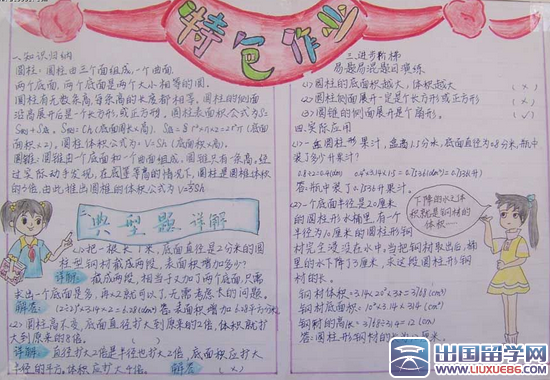 特色作业
一.知识归纳
圆柱:圆柱由三个面组成,一个曲面,
两个底面,两个底面是两个大小相等的圆。
圆柱有无数条高,每条高的长度都相等。圆柱的侧面
沿高展开后是一个长方形,或正方形。圆柱表面积公式为S=
圆锥:圆锥由一个底面和一个曲面组成,圆锥只有一条高,经
过实际动手发现,在底等高的情况下,圆柱是圆锥体积
的3倍,由此推出圆锥的体积公式为V=⅓Sh
二.典型题详解
(1)把一根长1米,底面直径是2分米的圆
柱型钢材截成两段,表面积增加多少?
详解:截成两段,相当于又加了两个面,只需
求出一个底面是多少,再×2就可以了,无需考虑长的问题。
解答:(2÷2)²×3.14×2=6.28(dm²) 答:表面积增加6.28平方分米。
(2)圆柱高不变,底面直径扩大到原来的2倍,体积就扩
大到原来的8倍。( )
详解:直径扩大2倍,半径也扩大2倍,底面积应扩大
半径的平方,体积应扩大4倍。 解答:(×)
三.进步阶梯
易题易混题目演练
(1)圆柱的底面积越大,体积越大 (×)
(2)圆柱侧面展开一定是个长方形或正方形 (×)
(3)圆锥的侧面展开是个扇形。 (√)
四.实际应用
(1)一盒圆柱形果汁,盒高1.5分米,底面直径为0.8分米,瓶中
装了多少升果汁?
0.8÷2=0.4(dm) 0.4²×3.14×1.5=0.7536(dm³)=0.7536(L)
答:瓶中装了0.7536升果汁。
(2)一个底面半径是20厘米
的圆柱形水桶里,有一个
半径为10厘米的圆柱形钢
材完全浸没在水中,当把钢材取出后,桶
里的水下降了3厘米,求这段圆柱形钢
材的长。
钢材体积=3.14×20²×3=3768(cm³)
钢材底面积=10²×3.14=314(cm²)
钢材的高(长)=3768÷314=12(cm)
答:圆柱形钢材的长为12厘米。
下降的水之体
积就是钢材的
体积……
出国留学网
www.liuxue86.com